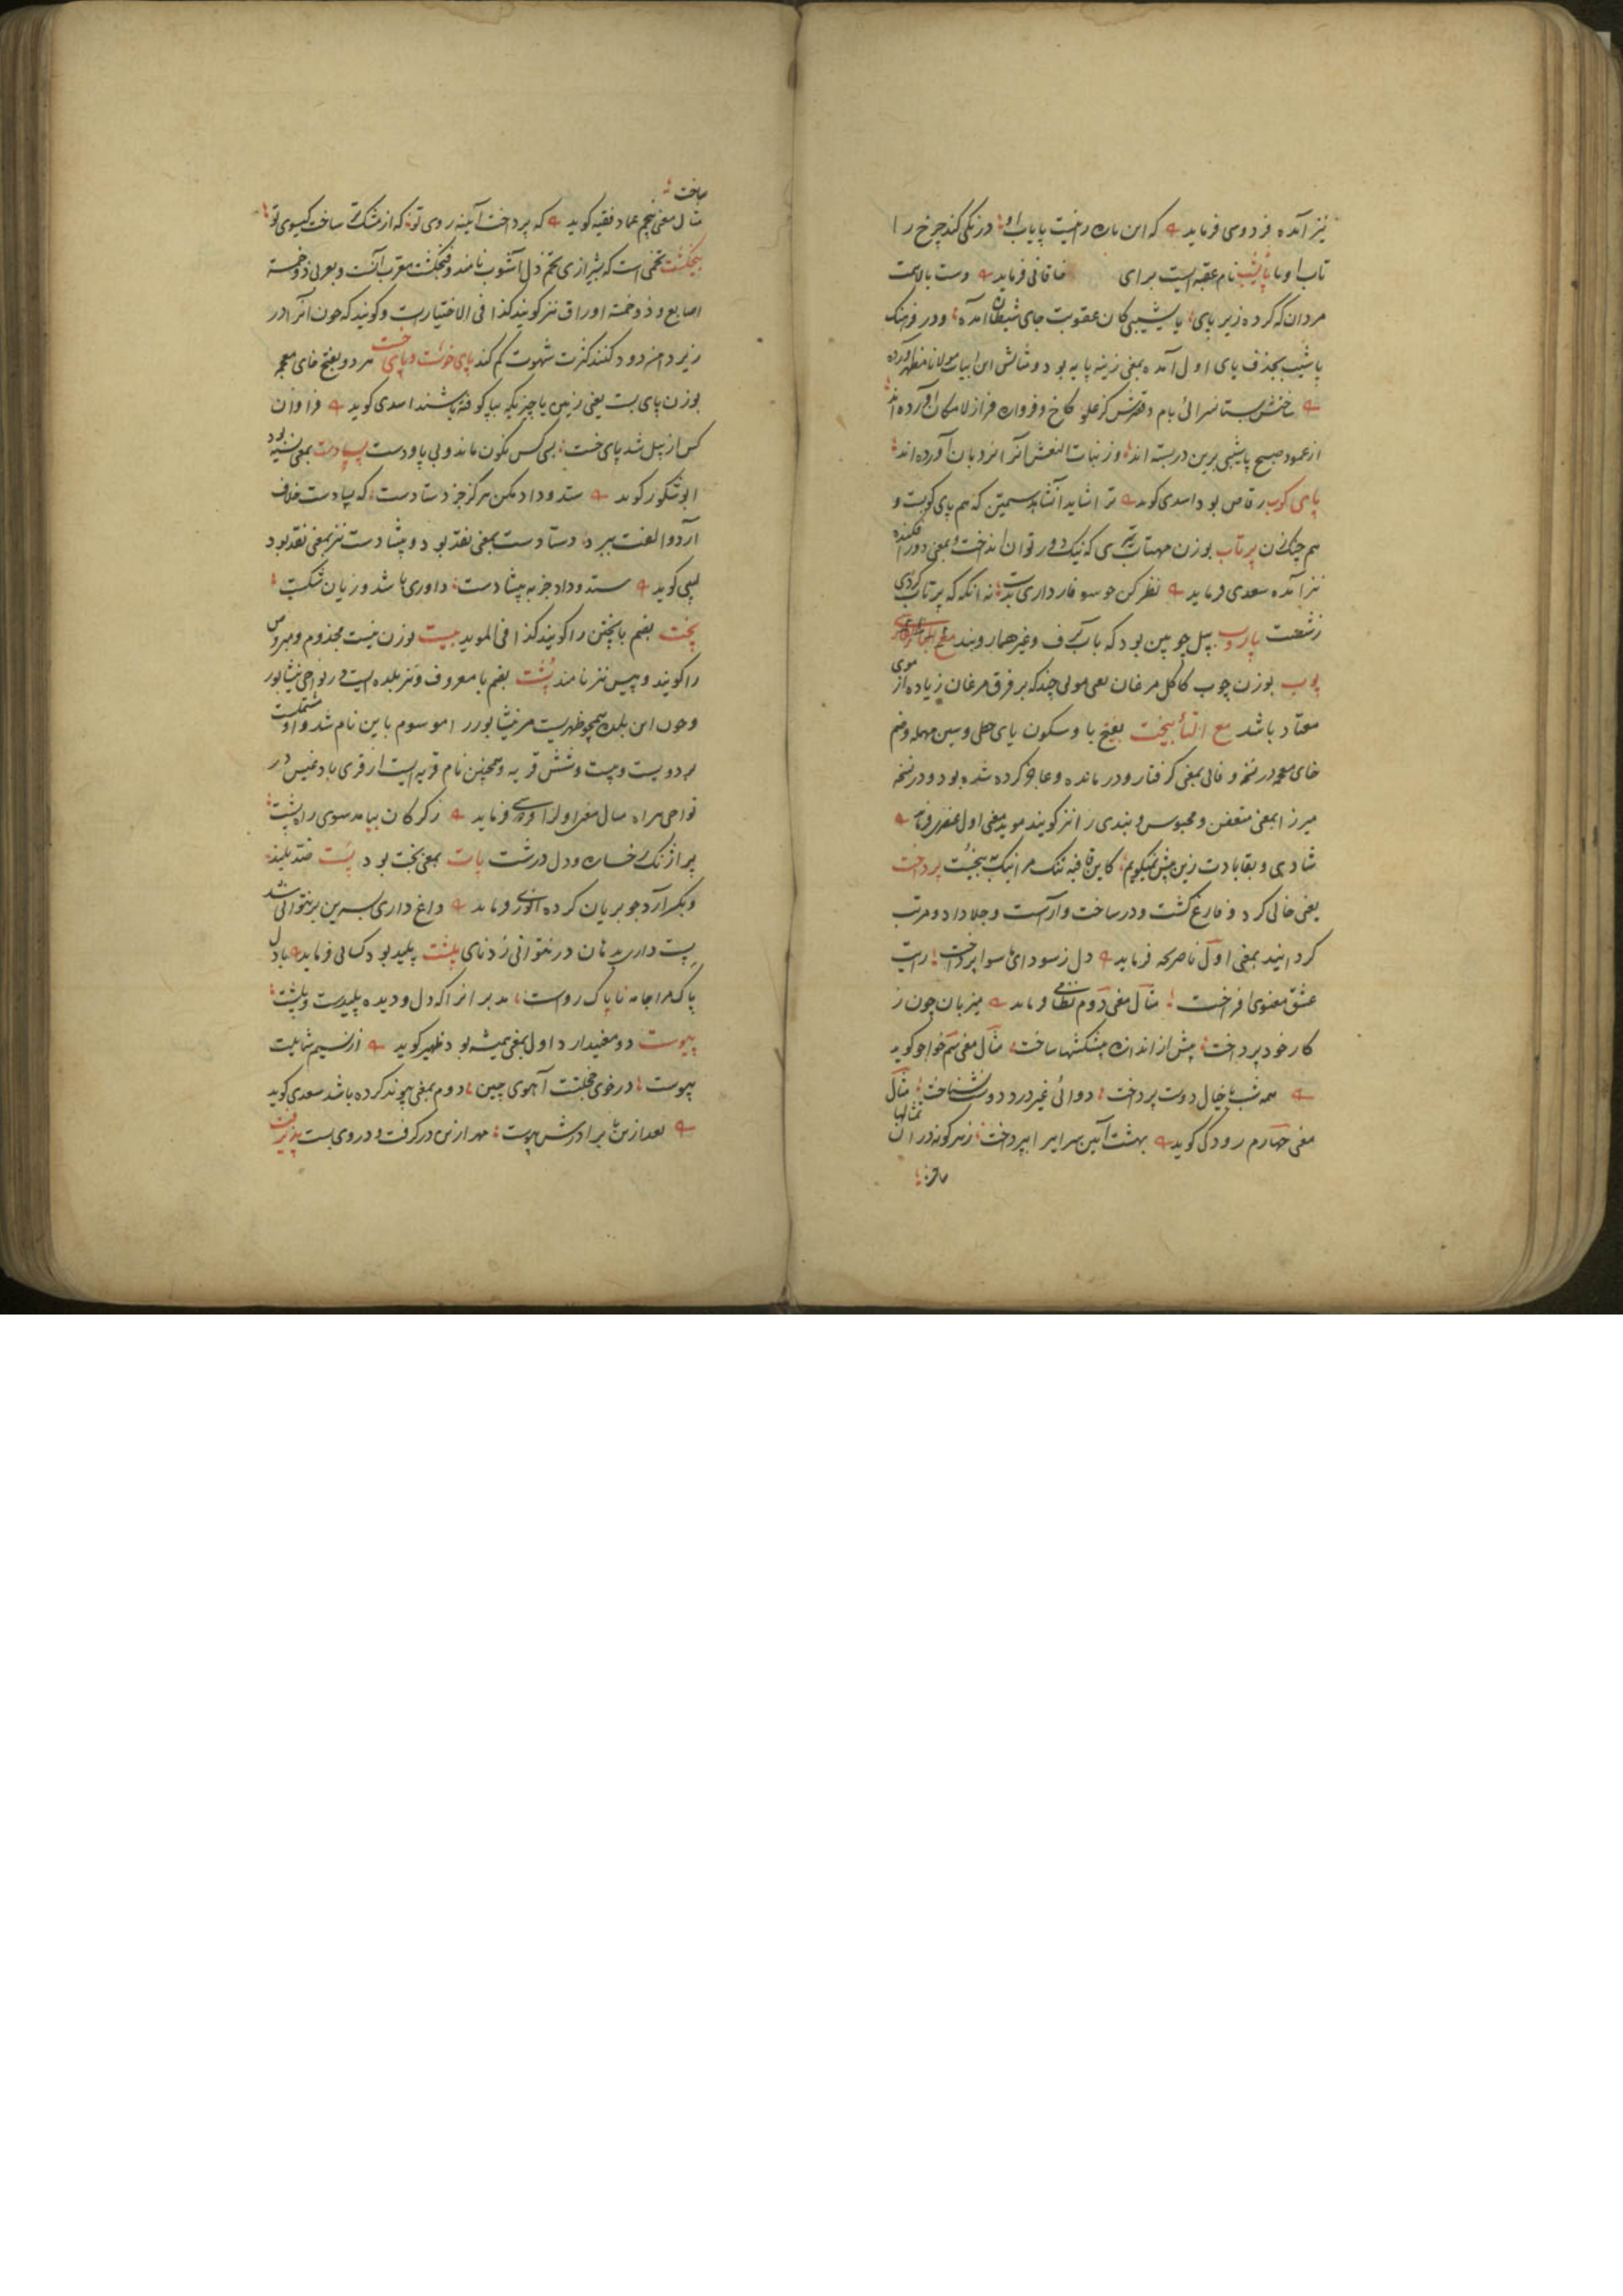 نیز آمده فردوسی فرماید که این باره را نیست پایاب او درنکی کند چرخ را
تاب او با پاشیب نام عقبه ایست برای خاقانی فرماید دست بالاست
مردان که کرده زیر پای پاشیبی کان عقوبت جای شیطان آمده و در فرهنک
پاشیب بحذف یای اول آمده بمعنی زینه پایه بود و مثالش این ابیات مولانا مظهر آورده
سرائی بام و قصرش کز علو کاخ و فروان فراز لامکان آورده اند
از عمود صبح پاشیبی برین در بسته اند وز نبات النعش آنرا نردبان آورده اند
پای کوب رقاص بود اسدی کوید هم پای کوبست و
هم چنک زن پرتاب بوزن مهتاب تیری که نیک دور توان انداخت و بمعنی دور افکنده
نیز آمده سعدی فرماید نظر کن چو سوفار داری بشست نه آنکه که پرتاب کردی
ز شصت پاروب بیل چوبین بود که بآن برف و غیر هما روبند
پوپ بوزن چوب کاکل مرغان یعنی موئی چند که بر فرق مرغان زیاده از موی
معتاد باشد مع التأ بیخست بفتح با و سکون یای حطی و سین مهمله و ضم
خای معجمه در نسخه وفائی بمعنی کرفتار و درمانده و عاجز کرده شده بود و در نسخه
میرزا بمعنی متعفن و محبوس و بندی را نیز کویند موید معنی اول عنصری فرماید
شادی و بقا بادت زین بیش نمیکویم کاین قافیه تنک مرا نیک بپیخست پرداخت
یعنی خالی کرد و فارغ کشت و در ساخت و آراست و جلا داد و مرتب
کردانید بمعنی اول ناصر فرماید دل ز سودای سوا پرداخت رایت
عشق معنوی افراخت مثال معنی دوم نظامی فرماید میزبان چون ز
کار خود پرداخت بیش از اندازه پیشکشها ساخت مثال معنی سیم خواجو کوید
همه شب با خیال دوست پرداخت دوائی غیر درد دوست نشناخت مثال
معنی چهارم رودکی کوید بهشت آیین سرایرا بپرداخت ز هر کونه در آن تمثالها
ساخت
مثال معنی پنجم عماد فقیه کوید که پرداخت آیینه روی تو که از مشک ساخت کیسوی تو
پنجنکشت تخمی است که شیرازی تخم دل آشوب نامند و فنجنکشت معرب آنست و بعربی ذو خمسة
اصابع و ذو خمسة اوراق نیز کویند کذا فی الاختیارات و کویند که چون آنرا در
زیر دامن دود کنند کثرت شهوت کم کند پای خوست و پای خست هر دو بفتح خای معجمه
بوزن پای بست یعنی زمین یا چیزیکه بپا کوفته باشند اسدی کوید فراوان
کس از پیل شد پای خست بسی کس نکون ماند و بی پا و دست پسادست بمعنی نسیه بود
ابوشکور کوید ستد و داد مکن هرکز جز دستادست که پسادست خلاف
آرد و الفت ببرد دستادست بمعنی نقد بود و پیشادست نیز بمعنی نقد بود
لبیبی کوید ستد و داد جز به پیشادست داوری باشد و زیان و شکست
پخت بضم با پختن را کویند کذا فی الموید پیست بوزن نیست مجذوم و مبروص
را کویند و پیس نیز نامند پُشت بضم با معروف و نیز بلده ایست در نواحی نیشابور
و چون این بلده همچو ظهریست مر نیشابور را موسوم باین نام شد و او مشتملست
بر دویست و بیست و شش قریه و همچنین نام قریه ایست از قری بادغیس در
نواحی هراه مثال معنی اول فرماید ز کرکان بیامد سوی راه پشت
پر از رنک رخساره و دل درشت پات بمعنی تخت بود پست ضد بلند
و دیکر آرد جو بریان کرده انوری فرماید داغ داری بسرین بر نتوانی شد
پست داری بدهان در نتوانی زد نای پلشت پلید بود کسائی فرماید با دل
پاک مرا جامه ناپاک رواست بد مر آنرا که دل و دیده پلیدست و پلشت
پیوست دو معنیدارد اول بمعنی همیشه بود ظهیر کوید از نسیم شمایلت
پیوست در خوی خجلتست آهوی چین دوم بمعنی پیوند کرده باشد سعدی کوید
بعد ازین با برادرش پیوست مهر ازین در کرفت و در روی بست پذیرفت